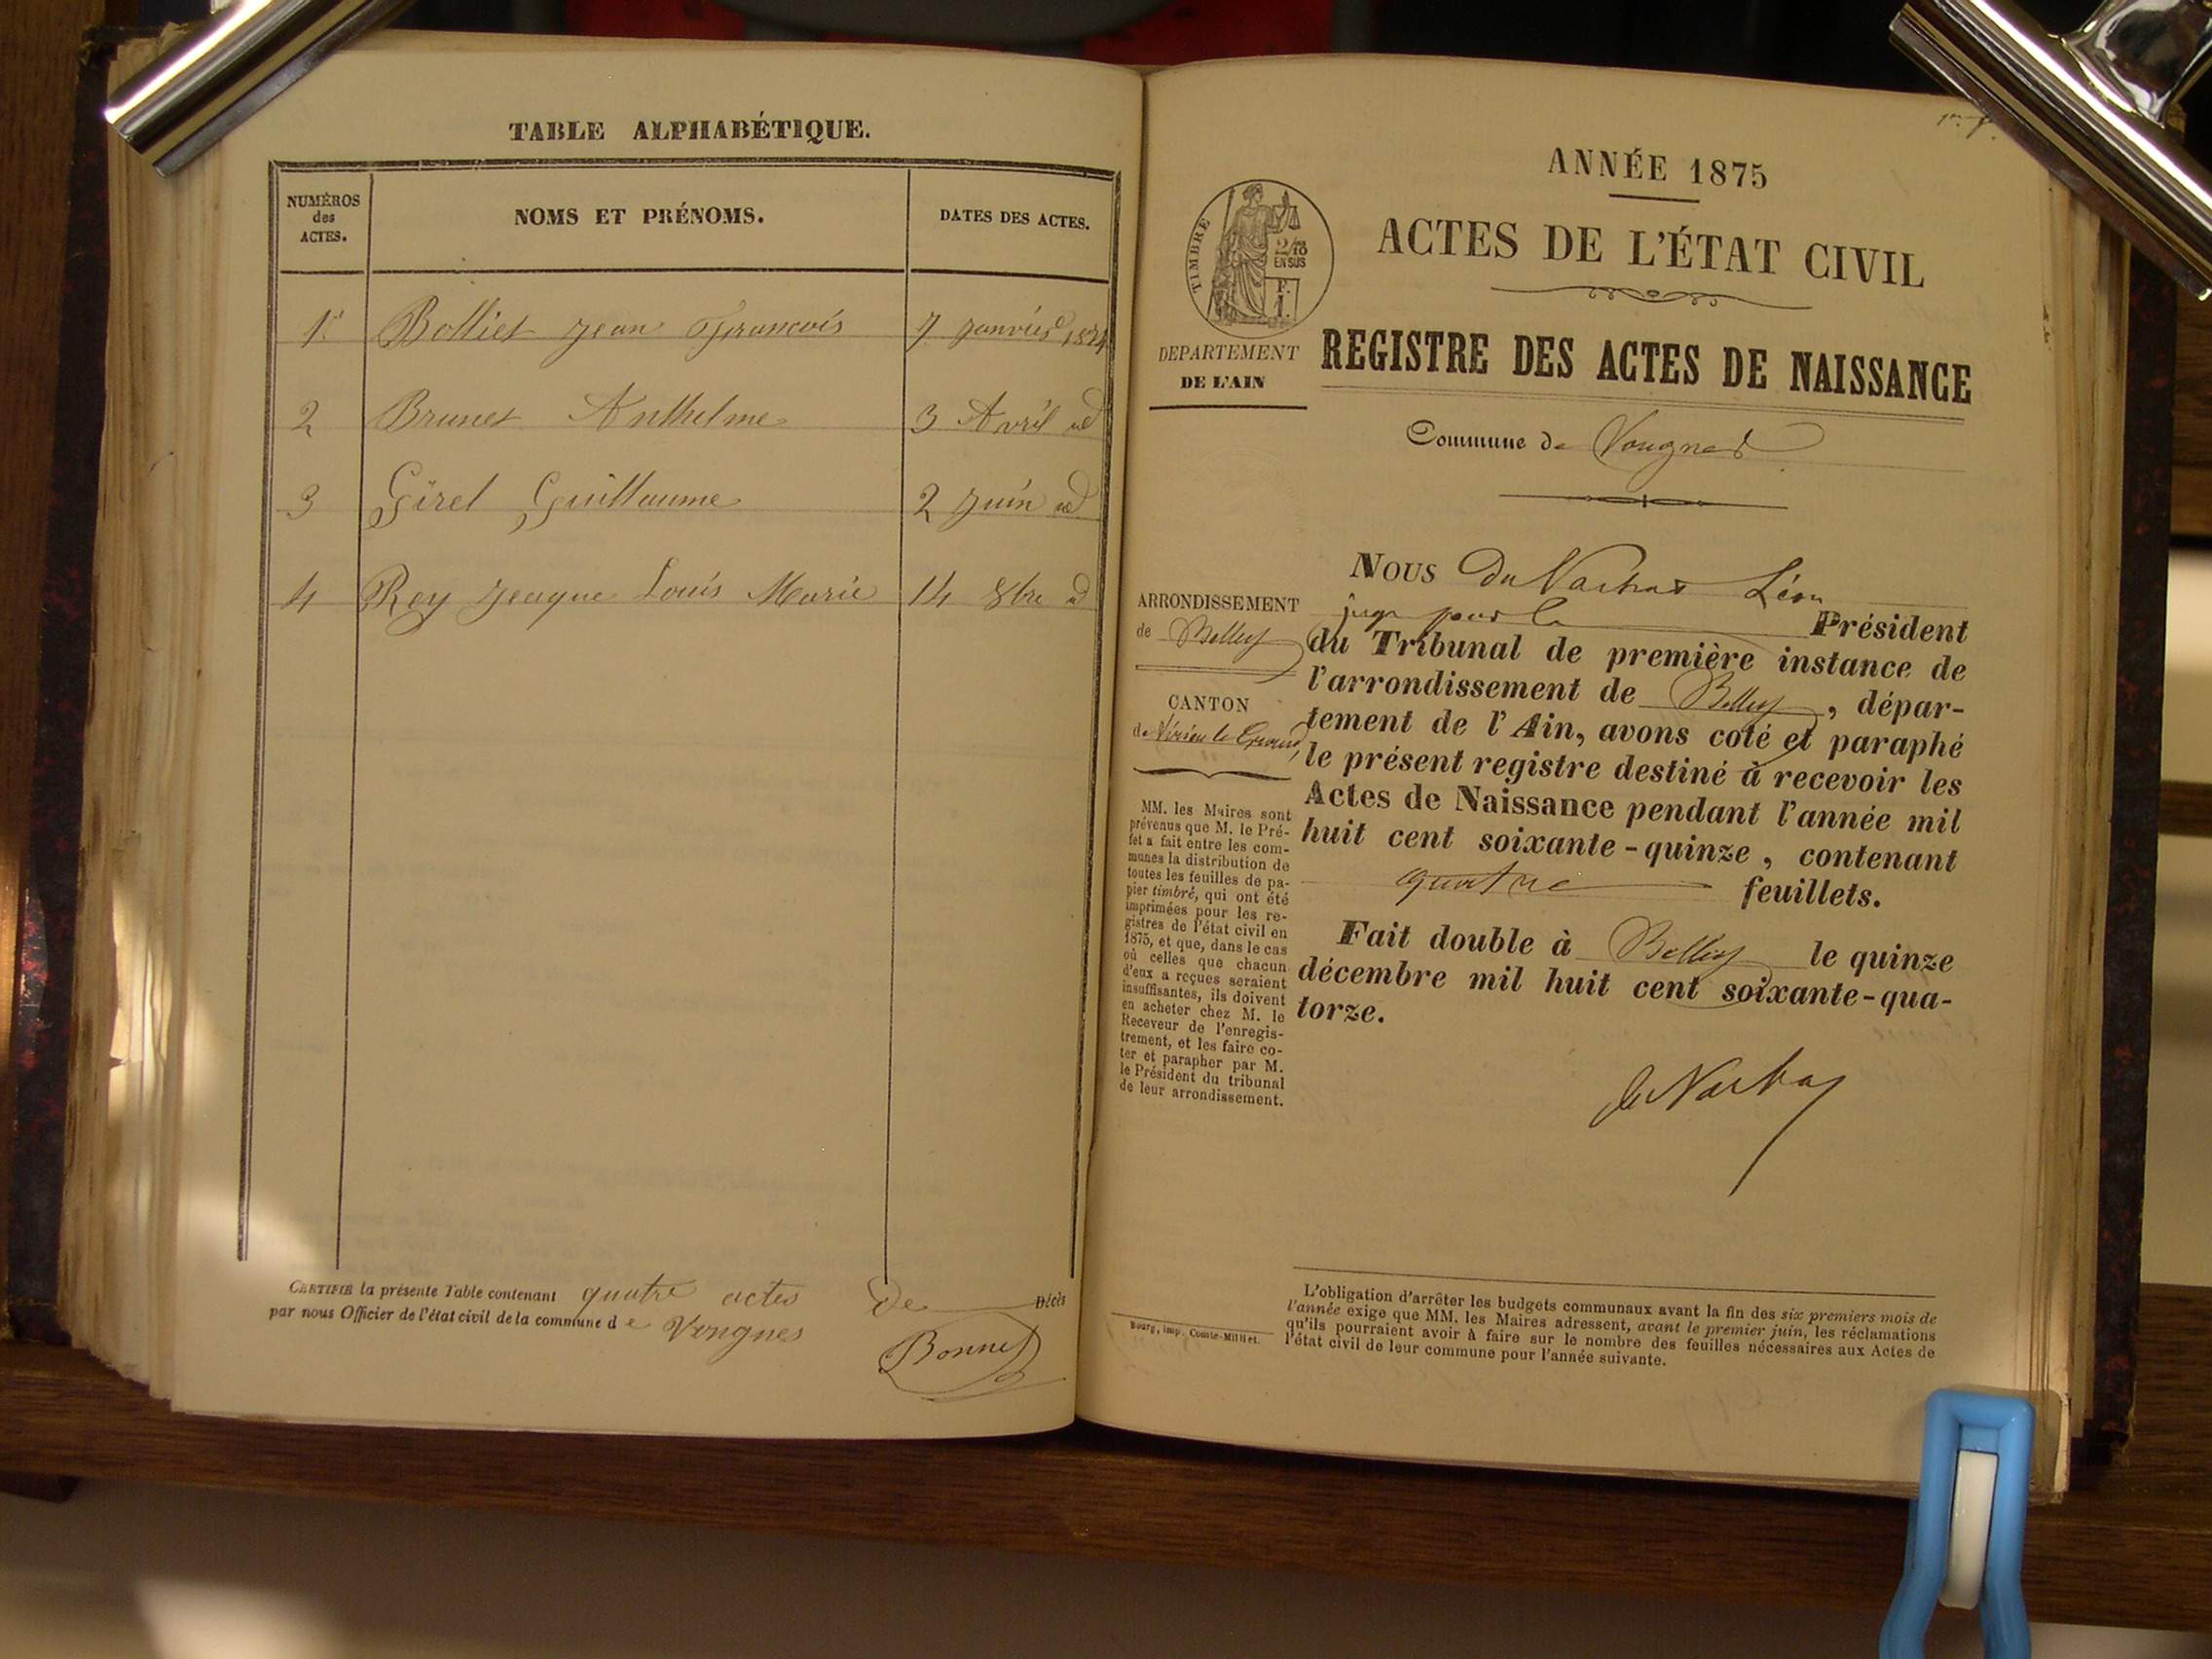 TABLE ALPHABÉTIQUE.
NUMÉROS des ACTES.
NOMS ET PRÉNOMS.
DATES DES ACTES.
1 Bolliet Jean François 7 Janvier 1874
2 Brunet Anthelme 3 Avril id
3 Girel Guillaume 2 Juin id
4 Rey Jeaque Louis Marie 14 8bre id
CERTIFIÉ la présente Table contenant quatre actes de Décès
par nous Officier de l'état civil de la commune de Vongnes
Bonnet
ANNÉE 1875
ACTES DE L'ÉTAT CIVIL
TIMBRE
2/10
EN SUS
DEPARTEMENT
DE L'AIN
REGISTRE DES ACTES DE NAISSANCE
Commune de Vongnes
ARRONDISSEMENT
de Belley
CANTON
de Virieu le Grand
MM. les Maires sont
prévenus que M. le Pré-
fet a fait entre les com-
munes la distribution de
toutes les feuilles de pa-
pier timbré, qui ont été
imprimées pour les re-
gistres de l'état civil en
1875, et que, dans le cas
où celles que chacun
d'eux a reçues seraient
insuffisantes, ils doivent
en acheter chez M. le
Receveur de l'enregis-
trement, et les faire co-
ter et parapher par M.
le Président du tribunal
de leur arrondissement.
NOUS Léon
juge pour le Président
du Tribunal de première instance de
l'arrondissement de Belley, dépar-
tement de l'Ain, avons coté et paraphé
le présent registre destiné à recevoir les
Actes de Naissance pendant l'année mil
huit cent soixante-quinze, contenant
quatre feuillets.
Fait double à Belley le quinze
décembre mil huit cent soixante-qua-
torze.
Bourg, imp. Comte-Milliet.
L'obligation d'arrêter les budgets communaux avant la fin des six premiers mois de
l'année exige que MM. les Maires adressent, avant le premier juin, les réclamations
qu'ils pourraient avoir à faire sur le nombre des feuilles nécessaires aux Actes de
l'état civil de leur commune pour l'année suivante.